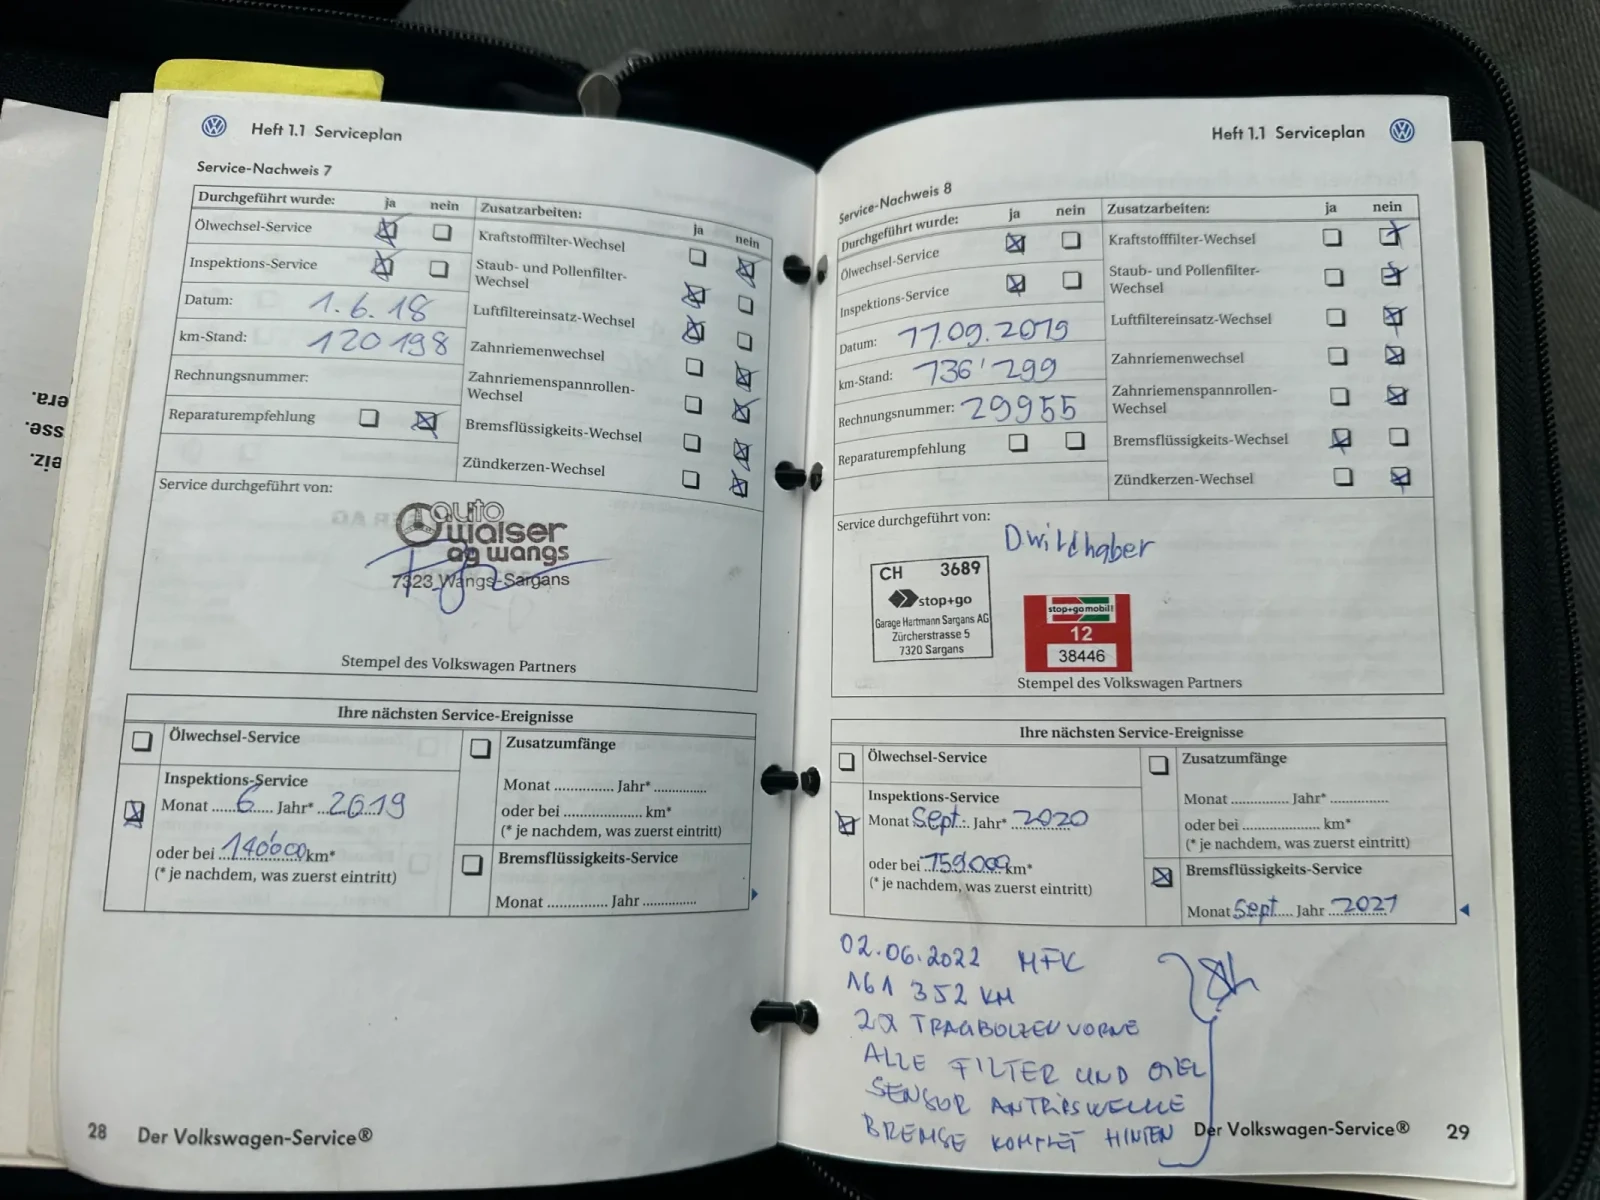 Heft 1.1 Serviceplan
Service-Nachweis 7
Durchgeführt wurde: ja nein
Ölwechsel-Service
Inspektions-Service
Datum: 1.6.18
km-Stand: 120198
Rechnungsnummer:
Reparaturempfehlung
Zusatzarbeiten: ja nein
Kraftstofffilter-Wechsel
Staub- und Pollenfilter-
Wechsel
Luftfiltereinsatz-Wechsel
Zahnriemenwechsel
Zahnriemenspannrollen-
Wechsel
Bremsflüssigkeits-Wechsel
Zündkerzen-Wechsel
Service durchgeführt von:
auto
walser
ag wangs
7323 Wangs-Sargans
Stempel des Volkswagen Partners
Ihre nächsten Service-Ereignisse
Ölwechsel-Service
Inspektions-Service
Monat ..... 6 ..... Jahr* ... 2019
oder bei ... 140'000 km*
(* je nachdem, was zuerst eintritt)
Zusatzumfänge
Monat .............. Jahr* ..............
oder bei ..................... km*
(* je nachdem, was zuerst eintritt)
Bremsflüssigkeits-Service
Monat .............. Jahr ..............
28 Der Volkswagen-Service®
Heft 1.1 Serviceplan
Service-Nachweis 8
Durchgeführt wurde: ja nein
Ölwechsel-Service
Inspektions-Service
Datum: 11.09.2019
km-Stand: 136'299
Rechnungsnummer: 29955
Reparaturempfehlung
Zusatzarbeiten: ja nein
Kraftstofffilter-Wechsel
Staub- und Pollenfilter-
Wechsel
Luftfiltereinsatz-Wechsel
Zahnriemenwechsel
Zahnriemenspannrollen-
Wechsel
Bremsflüssigkeits-Wechsel
Zündkerzen-Wechsel
Service durchgeführt von:
D.Wildhaber
CH 3689
stop+go
Garage Hartmann Sargans AG
Zürcherstrasse 5
7320 Sargans
stop+go mobil!
12
38446
Stempel des Volkswagen Partners
Ihre nächsten Service-Ereignisse
Ölwechsel-Service
Inspektions-Service
Monat Sept. Jahr* 2020
oder bei 159000 km*
(* je nachdem, was zuerst eintritt)
Zusatzumfänge
Monat .............. Jahr* ..............
oder bei ..................... km*
(* je nachdem, was zuerst eintritt)
Bremsflüssigkeits-Service
Monat Sept Jahr 2021
02.06.2022 MFK
161 352 KM
2X TRAGBOLZEN VORNE
ALLE FILTER UND OEL
SENSOR ANTRIBSWELLE
BREMSE KOMPLET HINTEN
Der Volkswagen-Service® 29